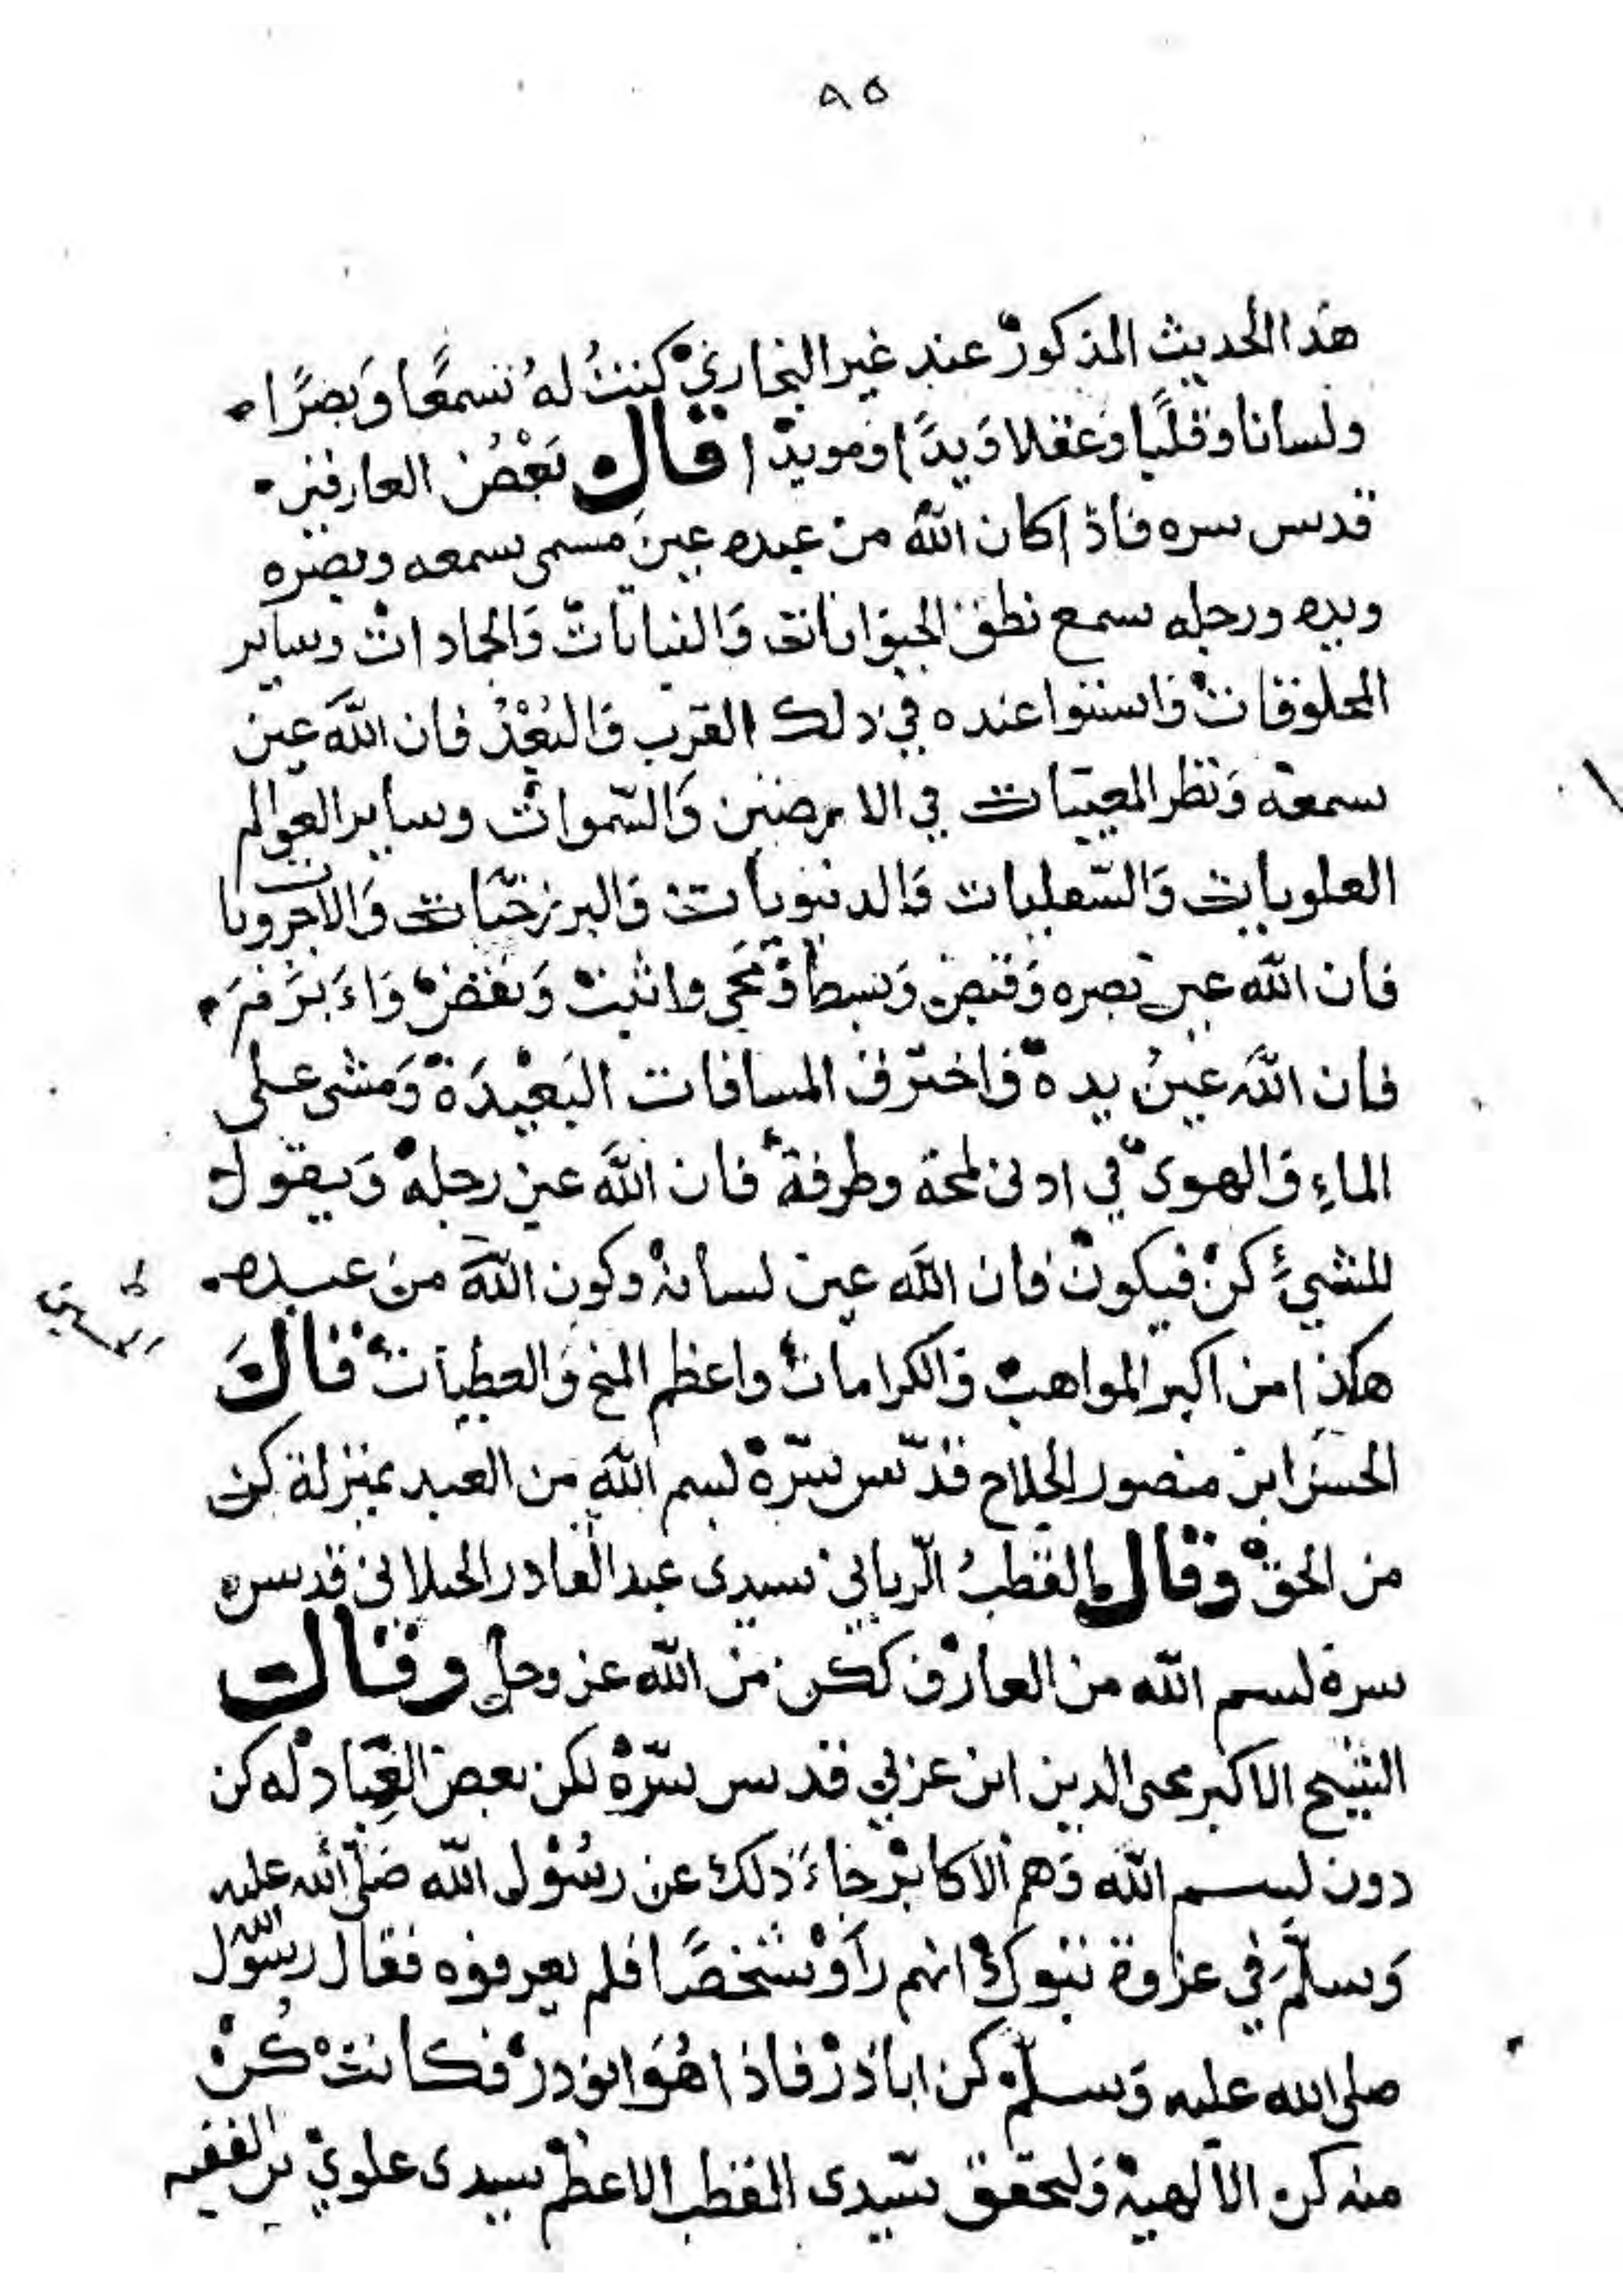 ٨٥
هذا الحديث المذكور عند غير البخاري كنت له سمعًا وبصرًا
ولسانا وقلبًا وعقلا ويدًا ومويدا قال بعض العارفين
قدس سره فاذا كان الله من عبده عين مسمى سمعه وبصره
ويده ورجله سمع نطق الحيوانات والنباتات والجمادات وساير
المخلوقات واستوا عنده في ذلك القرب والبعد فان الله عين
سمعه ونظر المغيبات في الارضين والسموات وساير العوالم
العلويات والسفليات والدنيويات والبرزخيات والاخرويات
فان الله عين بصره وقبض وبسط ومحى واثبت ونقض وابرم
فان الله عين يده واخترق المسافات البعيدة ومشى على
الماء والهوى في ادنى لمحة وطرفة فان الله عين رجله ويقول
للشيء كن فيكون فان الله عين لسانه وكون الله من عبده
هكذا من اكبر المواهب والكرامات واعظم المنح والعطيات قال
الحسن ابن منصور الحلاج قدس سره بسم الله من العبد بمنزلة كن
من الحق وقال القطب الرباني سيدى عبد القادر الجيلاني قدسره
سره بسم الله من العارف ككن من الله عز وجل وقال
الشيخ الاكبر محى الدين ابن عربي قدس سره لكن بعض العباد له كن
دون بسم الله وهم الاكابر جاء ذلك عن رسول الله صلى الله عليه
وسلم في غزاوة تبوك انهم راو شخصًا فلم يعرفوه فقال رسول الله
صلى الله عليه وسلم كن اباذر فاذا هو ابوذر فكانت كن
منه كن الالهية ولتحقق سيدى القطب الاعظم سيدى علوي بن الفقيه